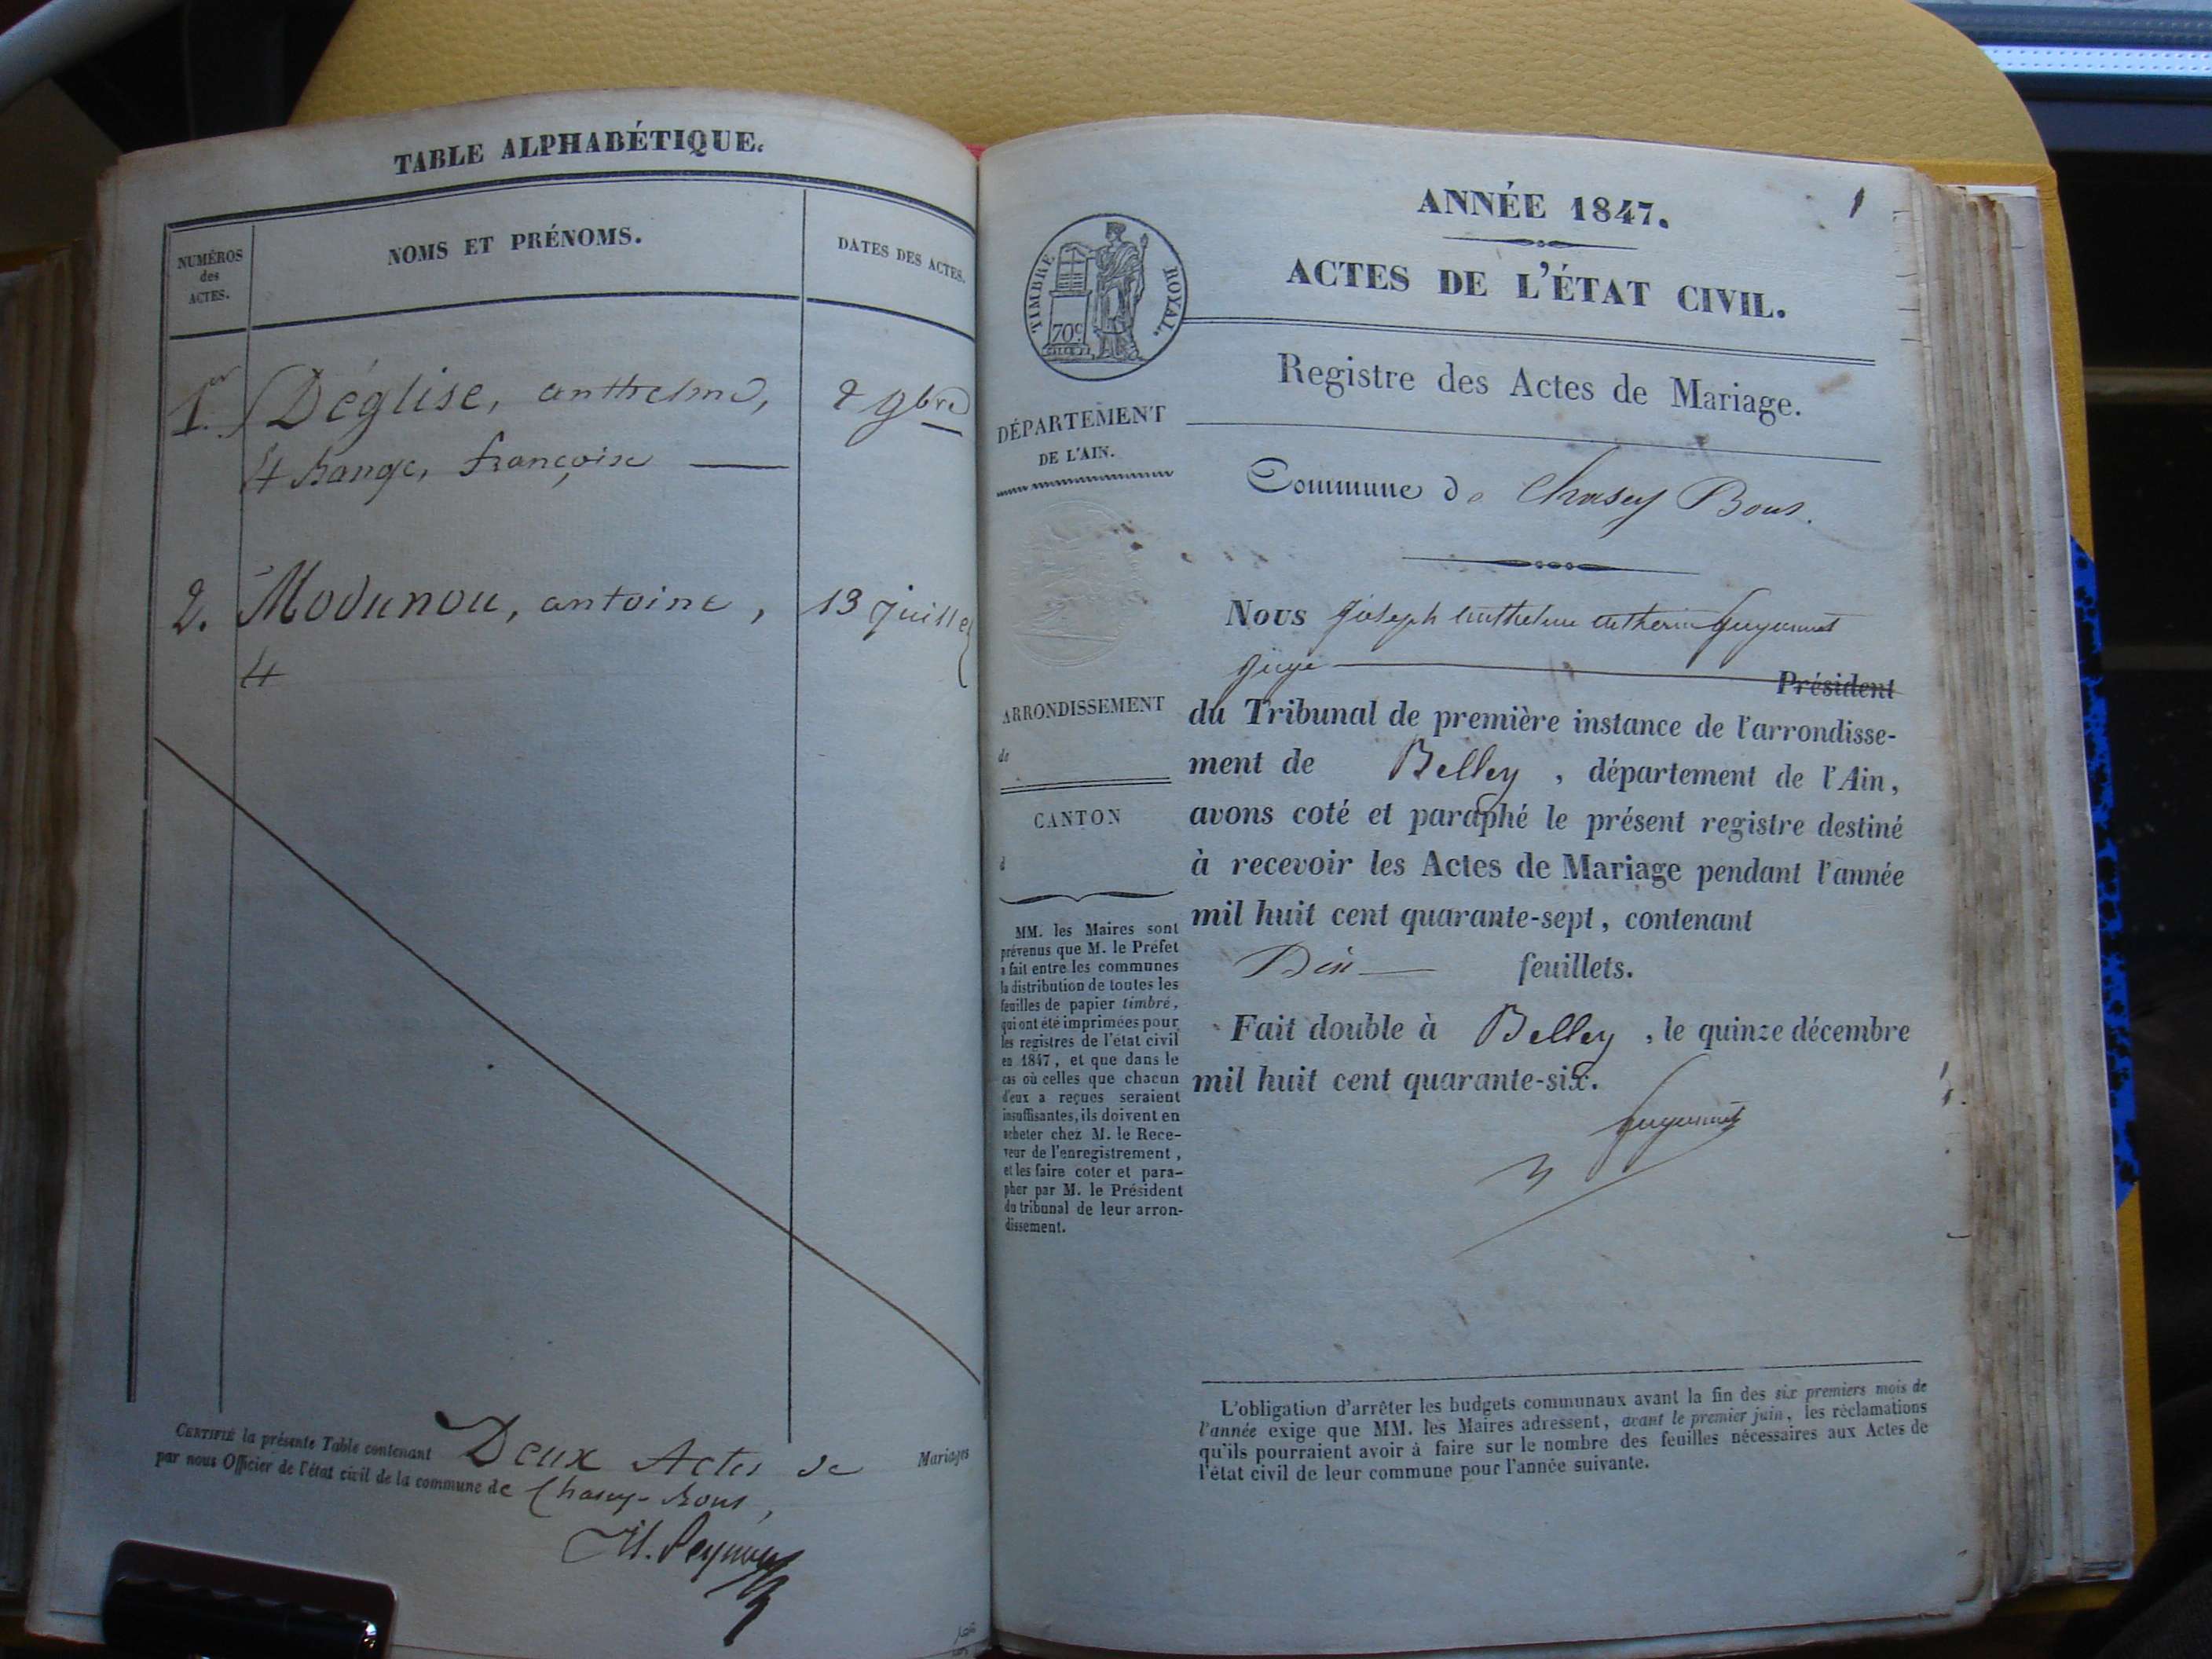 TABLE ALPHABÉTIQUE.
NUMÉROS
des
ACTES.
NOMS ET PRÉNOMS.
DATES DES ACTES.
1er Déglise, anthelme, 2 9bre
françoise
2. Modunou, antoine, 13 juillet
CERTIFIÉ la présente Table contenant Deux Actes de Mariages
par nous Officier de l'état civil de la commune de Chasey-Bons,
ANNÉE 1847.
1
ACTES DE L'ÉTAT CIVIL.
TIMBRE ROYAL.
70c
Registre des Actes de Mariage.
DÉPARTEMENT
DE L'AIN.
Commune de Chasey Bons.
ARRONDISSEMENT
de
CANTON
d
MM. les Maires sont
prévenus que M. le Préfet
a fait entre les communes
la distribution de toutes les
feuilles de papier timbré,
qui ont été imprimées pour
les registres de l'état civil
en 1847, et que dans le
cas où celles que chacun
d'eux a reçues seraient
insuffisantes, ils doivent en
acheter chez M. le Rece-
veur de l'enregistrement,
et les faire coter et para-
pher par M. le Président
du tribunal de leur arron-
dissement.
Nous Joseph anthelme
juge Président
du Tribunal de première instance de l'arrondisse-
ment de Belley, département de l'Ain,
avons coté et paraphé le présent registre destiné
à recevoir les Actes de Mariage pendant l'année
mil huit cent quarante-sept, contenant
Dix feuillets.
Fait double à Belley, le quinze décembre
mil huit cent quarante-six.
L'obligation d'arrêter les budgets communaux avant la fin des six premiers mois de
l'année exige que MM. les Maires adressent, avant le premier juin, les réclamations
qu'ils pourraient avoir à faire sur le nombre des feuilles nécessaires aux Actes de
l'état civil de leur commune pour l'année suivante.